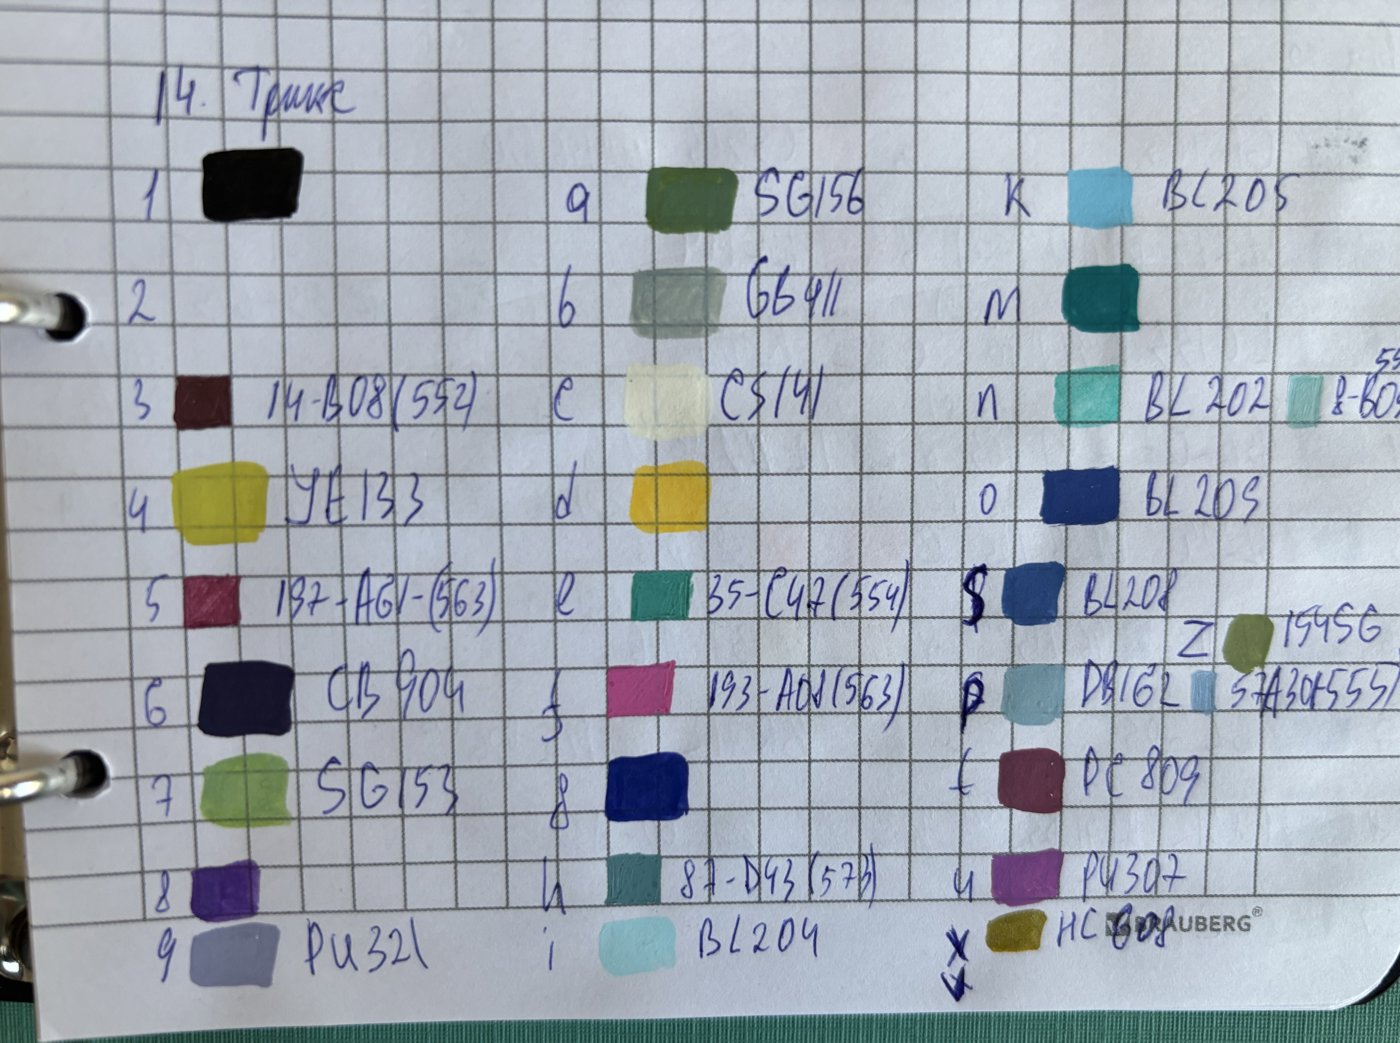 14. Трикс
1
2
3 14-B08(552)
4 YE133
5 197-A61-(563)
6 CB904
7 SG153
8
9 PU321
a SG156
b GG411
c CS141
d
e 35-C47(554)
f 193-A08(563)
g
h 87-D43(573)
i BL204
K BL205
M
n BL202 8-B04
o BL209
S BL208
Z 154SG
p DB162 57A30(555)
t PC809
u PU307
x HC608
BRAUBERG®